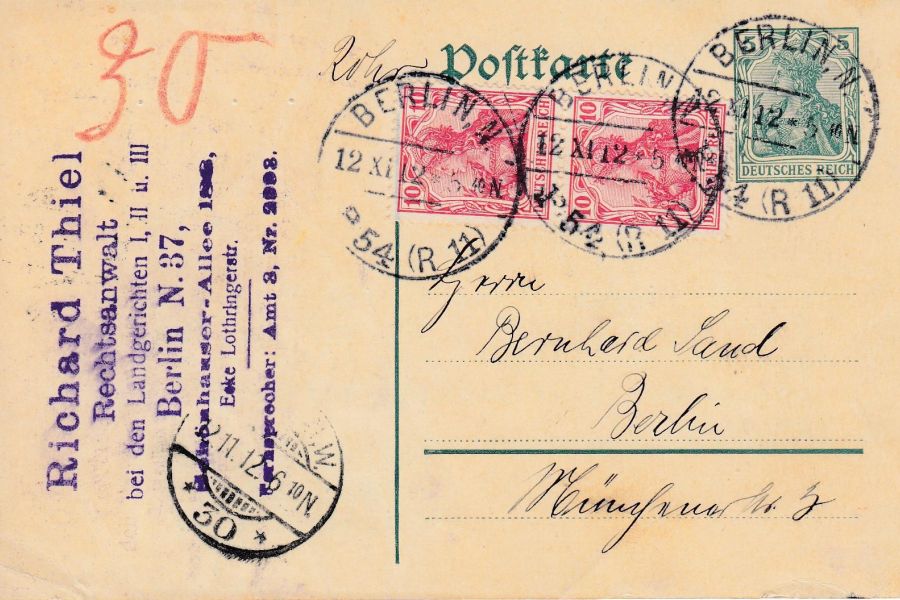 30
Rohr
Postkarte
5
5
DEUTSCHES REICH
10
10
10
DEUTSCHES REICH
BERLIN, N
12 XI 12 * 5 40 N
* 54 (R 11)
BERLIN, N
12 XI 12 * 5 40 N
* 54 (R 11)
BERLIN, N
12 XI 12 * 5 40 N
* 54 (R 11)
Richard Thiel
Rechtsanwalt
bei den Landgerichten I, II u. III
Berlin N. 37,
Schönhauser-Allee
Ecke Lothringerstr.
Fernsprecher: Amt 3, Nr.
W
12.11.12. 6 10 N
* 30 *
Herrn
Bernhard Sand
Berlin
Münchenerstr. 3